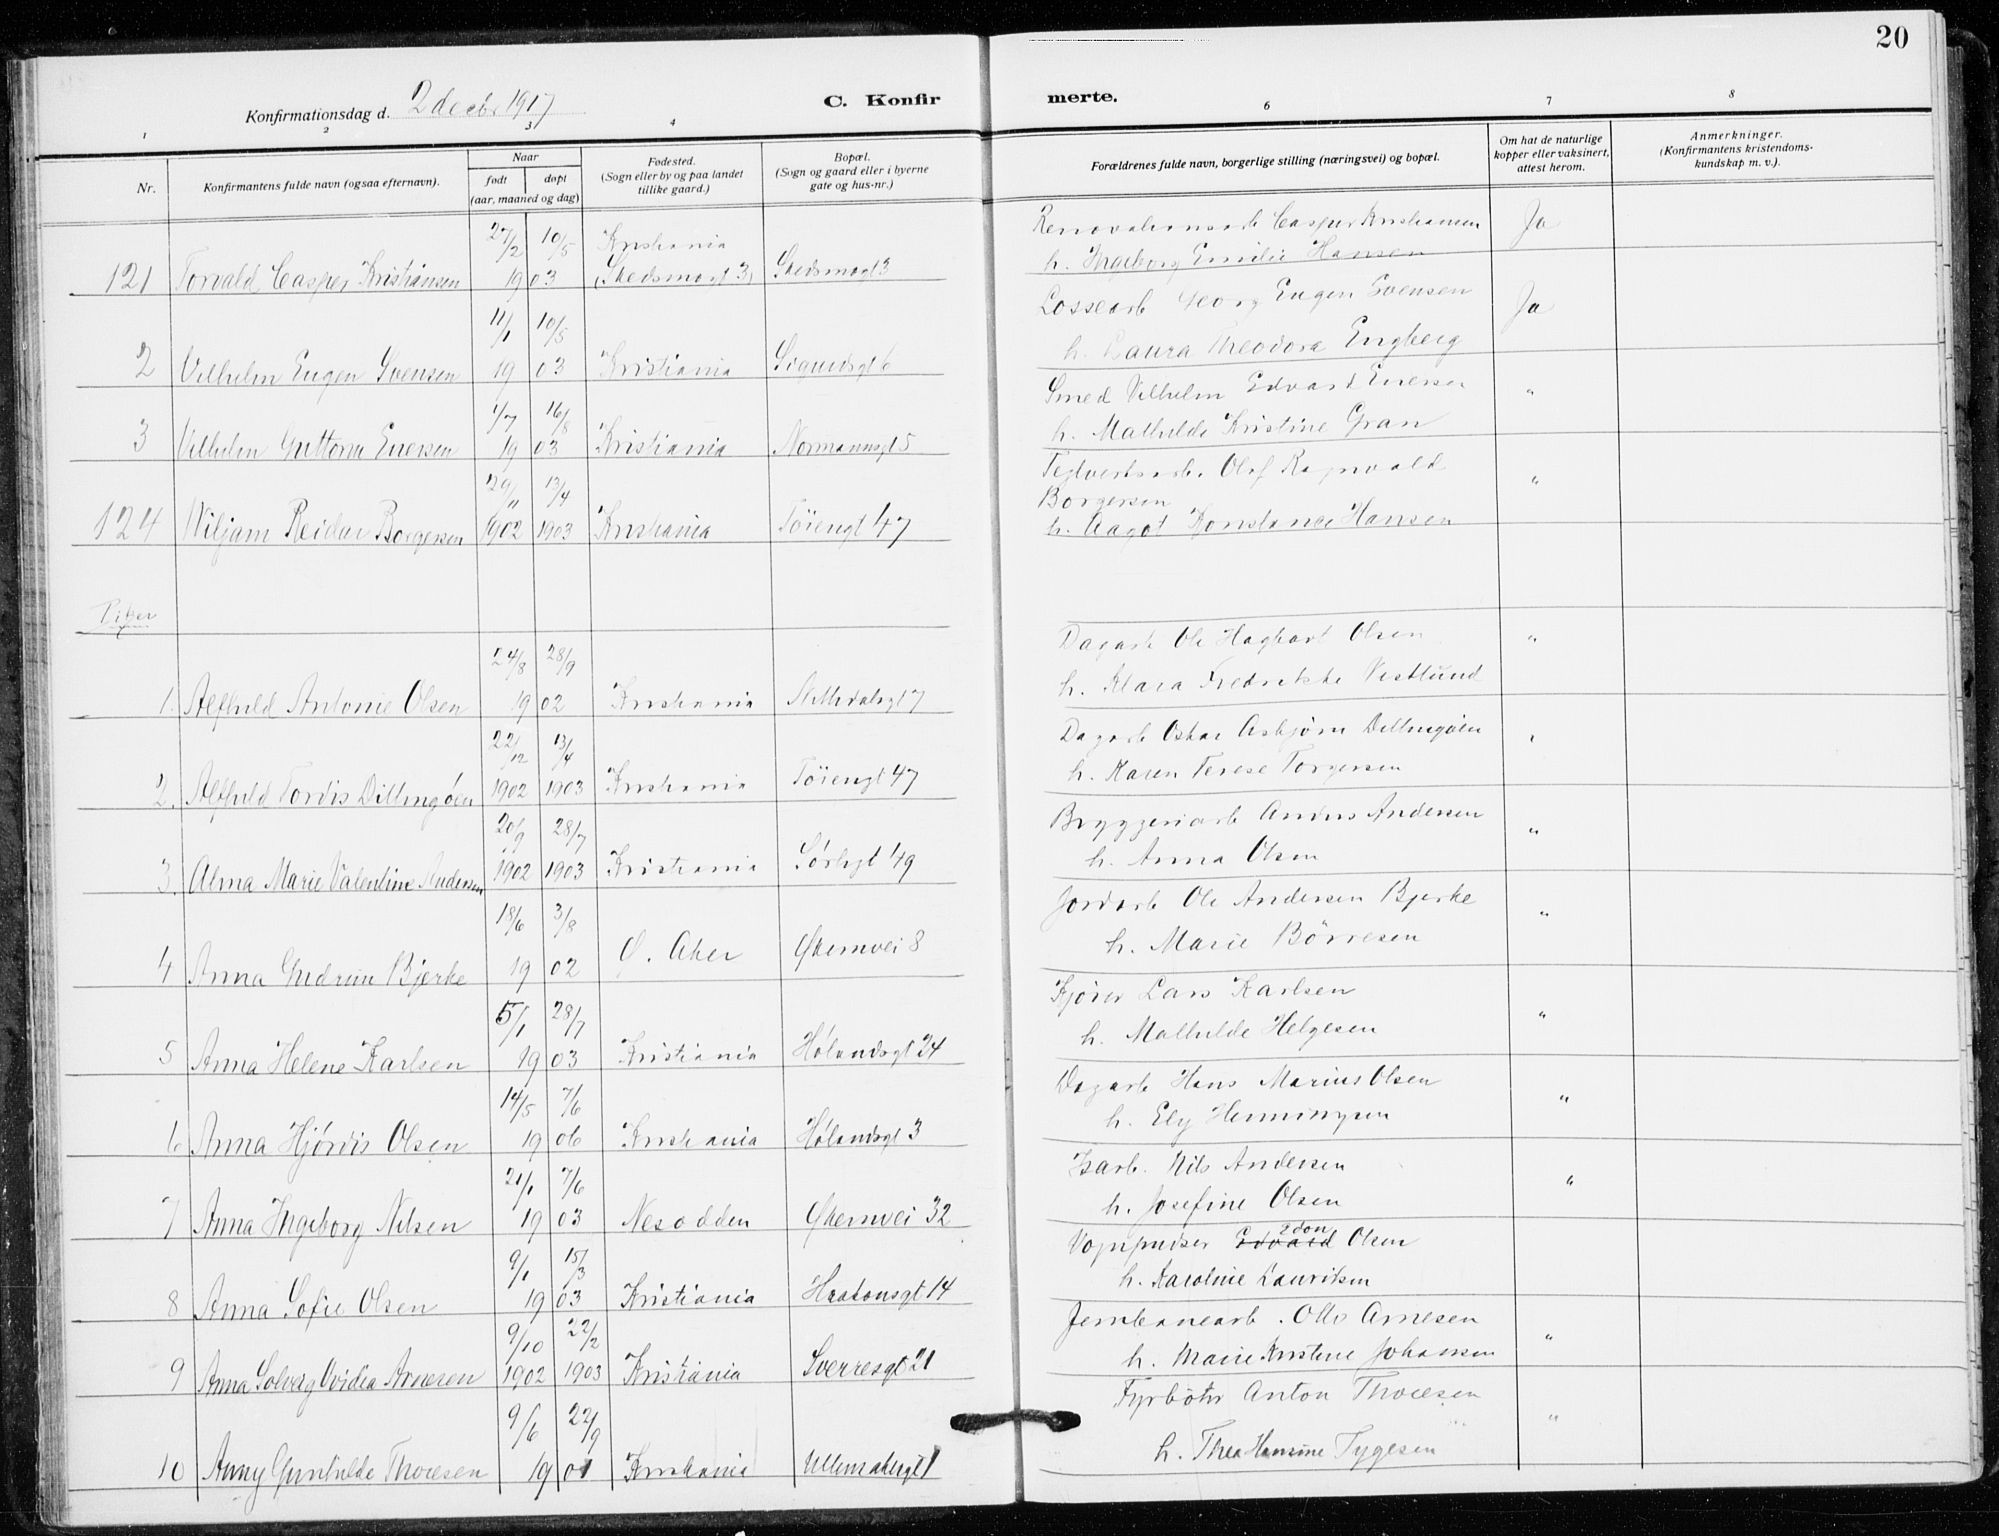 20
Konfirmationsdag d. 2 decbr 1917
C. Konfir merte.
1 2 3 4 6 7 8
Nr.
Konfirmantens fulde navn (ogsaa efternavn).
Naar
født døpt
(aar, maaned og dag)
Fødested.
(Sogn eller by og paa landet
tillike gaard.)
Bopæl.
(Sogn og gaard eller i byerne
gate og hus-nr.)
Forældrenes fulde navn, borgerlige stilling (næringsvei) og bopæl.
Om hat de naturlige
kopper eller vaksinert,
attest herom.
Anmerkninger.
(Konfirmantens kristendoms-
kundskap m. v.).
27/2 10/5 Kristiania Renovationsarb Casper Kristiansen Ja
121 Torvald Casper Kristiansen 19 03 (Skedsmogt 3) Skedsmogt 3 h. Ingeborg Emilie Hansen
11/1 10/5 Lossearb Georg Eugen Svensen Ja
2 Vilhelm Eugen Svensen 19 03 Kristiania Sigurdsgt 6 h. Laura Theodora Engberg
1/7 16/8 Smed Vilhelm Edvard Enersen "
3 Vilhelm Guttorm Enersen 19 03 Kristiania Normannsgt 5 h. Mathilde Kristine Gran
29/11 13/4 Teglverksarb. Olaf Ragnvald "
Borgersen
124 Wiljam Reidar Borgersen 1902 1903 Kristiania Töiengt 47 h. Aagot Konstance Hansen
Piker
24/8 28/9 Dagarb Ole Hagbart Olsen "
1. Alfhild Antonie Olsen 19 02 Kristiania h. Klara Fredrikke Vestlund
22/12 13/4 Dagarb Oskar Asbjørn Dillingøen "
2. Alfhild Tordis Dillingøen 1902 1903 Kristiania Töiengt 47 h. Karen Terese Torgersen
20/9 28/7 Bryggeriarb Anders Andersen "
3. Alma Marie Valentine Andersen 1902 1903 Kristiania Sørligt 49 h. Anna Olsen
18/6 3/8 Jordarb Ole Andersen Bjerke "
4 Anna Gudrun Bjerke 19 02 Ø. Aker Økernvei 8 h. Marie Börresen
5/1 28/7 Kjører Lars Karlsen "
5 Anna Helene Karlsen 19 03 Kristiania Hølandsgt 24 h. Mathilde Helgesen
14/5 7/6 Dagarb Hans Marius Olsen "
6 Anna Hjördis Olsen 19 06 Kristiania Hølandsgt 3 h. Ely Henningsen
21/1 7/6 Isarb. Nils Andersen "
7 Anna Ingeborg Nilsen 19 03 Nesodden Økernvei 32 h. Josefine Olsen
9/1 15/3 Vognpudser Edvard Edon Olsen
8 Anna Sofie Olsen 19 03 Kristiania Haakonsgt 14 h. Karoline Lauritsen
9/10 22/2 Jernbanearb. Otto Arnesen "
9 Anna Solveig Ovidia Arnesen 1902 1903 Kristiania Sverresgt 21 h. Marie Kirstine Johansen
9/6 22/9 Fyrböter Anton Thoresen "
10 Anny Gunhilde Thoresen 19 01 Kristiania Ullensakergt 1 h. Thea Hansine Tygesen